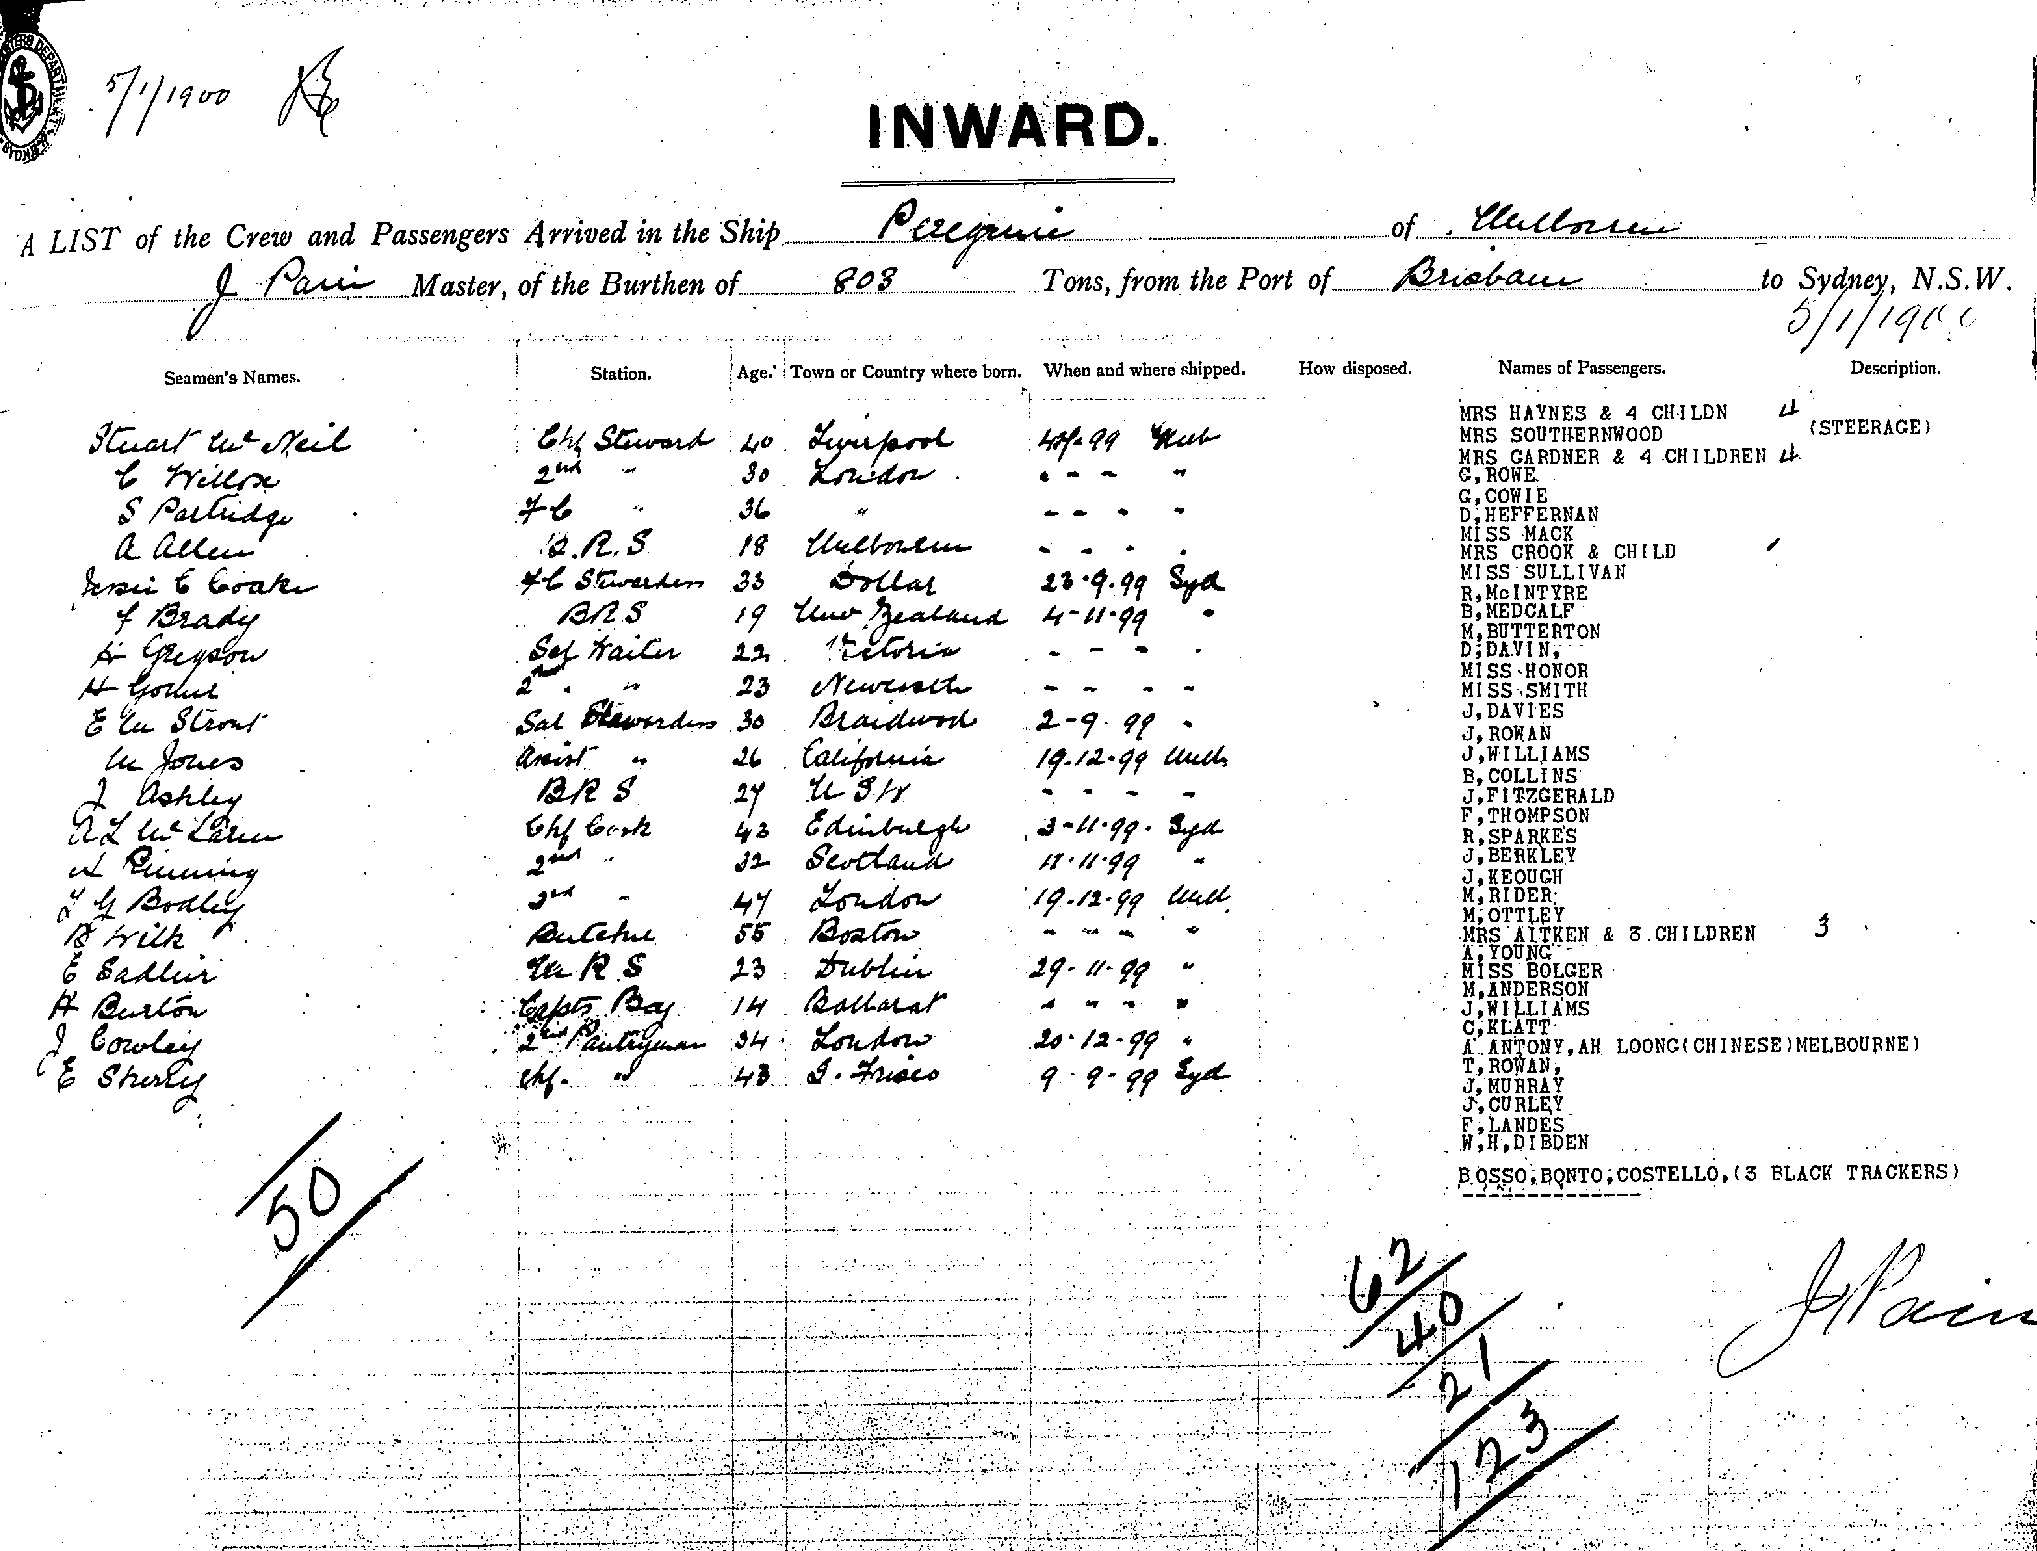 5/1/1900
INWARD.
A LIST of the Crew and Passengers Arrived in the Ship Peregrine of Melbourne
J Pain Master, of the Burthen of 808 Tons, from the Port of Brisbane to Sydney, N.S.W.
5/1/1900
Seamen's Names. Station. Age. Town or Country where born. When and where shipped. How disposed. Names of Passengers. Description.
Stuart McNeil Chf Steward 40 Liverpool 99 Melb
C Willox 2nd " 30 London - - - "
S Partridge F C " 36 " - - - -
A Allen B.R.S 18 Melbourne - - - -
Jessie C Coake F C Stewardess 33 Dollar 23.9.99 Syd
F Brady BRS 19 New Zealand 4-11-99 "
H Greyson Sal Waiter 22 Victoria - - - -
H Gorrie 2nd " 23 Newcastle - - - -
E M Strout Sal Stewardess 30 Braidwood 2-9-99 "
M Jones Assist " 26 California 19.12.99 Melb
J Ashley BRS 27 N S W - - - -
A L McLaren Chf Cook 43 Edinburgh 3-11-99 Syd
2nd " 32 Scotland 11.11.99 "
L G Bodley 3rd " 47 London 19.12.99 Melb
B Wilk Butcher 55 Boston - - - "
E Sadlier M R S 23 Dublin 29-11-99 "
H Burton Capts Boy 14 Ballarat - - - "
J Cowley 2nd Pantryman 34 London 20-12-99 "
E Sherry Chf. " 43 S. Frisco 9-9-99 Syd
50
MRS HAYNES & 4 CHILDN 4
MRS SOUTHERNWOOD (STEERAGE)
MRS GARDNER & 4 CHILDREN 4
G,ROWE
G,COWIE
D,HEFFERNAN
MISS MACK
MRS CROOK & CHILD
MISS SULLIVAN
R,McINTYRE
B,MEDCALF
M,BUTTERTON
D,DAVIN,
MISS HONOR
MISS SMITH
J,DAVIES
J,ROWAN
J,WILLIAMS
B,COLLINS
J,FITZGERALD
F,THOMPSON
R,SPARKES
J,BERKLEY
J,KEOUGH
M,RIDER
M,OTTLEY
MRS AITKEN & 3.CHILDREN 3
A,YOUNG
MISS BOLGER
M,ANDERSON
J,WILLIAMS
C,KLATT
A ANTONY,AH LOONG(CHINESE)MELBOURNE)
T,ROWAN,
J,MURRAY
J,CURLEY
F,LANDES
W,H,DIBDEN
BOSSO,BONTO,COSTELLO,(3 BLACK TRACKERS)
62
40
21
123
J Pain